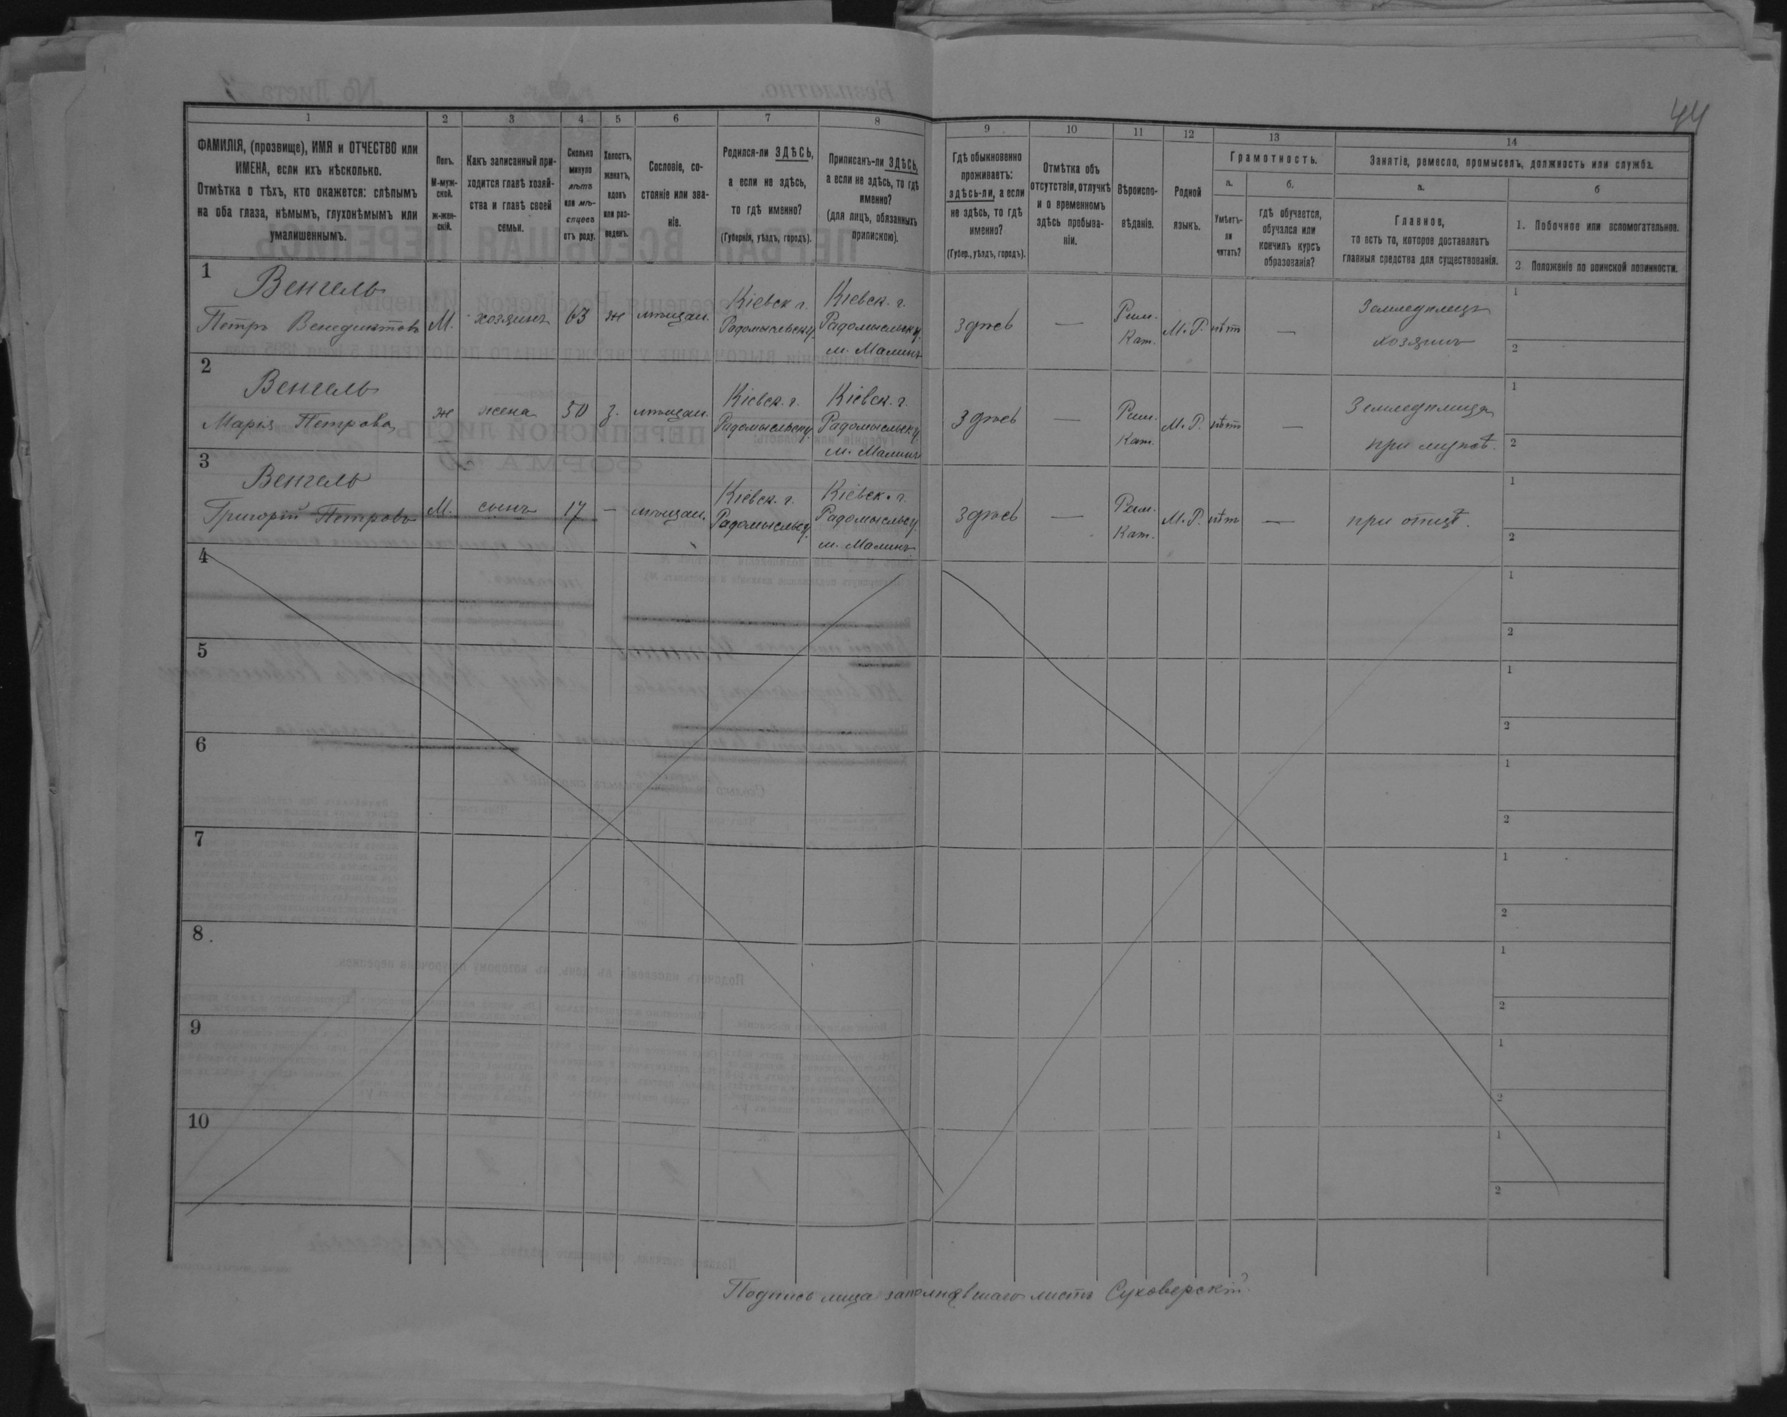 44
1 2 3 4 5 6 7 8 9 10 11 12 13 14
ФАМИЛІЯ, (прозвище), ИМЯ и ОТЧЕСТВО или
ИМЕНА, если ихъ нѣсколько.
Отмѣтка о тѣхъ, кто окажется: слѣпымъ
на оба глаза, нѣмымъ, глухонѣмымъ или
умалишеннымъ.
Полъ.
М-муж-
ской.
ж-жен-
скій.
Какъ записанный при-
ходится главѣ хозяй-
ства и главѣ своей
семьи.
Сколько
минуло
лѣтъ
или мѣ-
сяцевъ
отъ роду.
Холостъ,
женатъ,
вдовъ
или раз-
веденъ.
Сословіе, со-
стояніе или зва-
ніе.
Родился-ли ЗДѢСЬ,
а если не здѣсь,
то гдѣ именно?
(Губернія, уѣздъ, городъ).
Приписанъ-ли ЗДѢСЬ,
а если не здѣсь, то гдѣ
именно?
(для лицъ, обязанныхъ
припискою).
Гдѣ обыкновенно
проживаетъ:
здѣсь-ли, а если
не здѣсь, то гдѣ
именно?
(Губер., уѣздъ, городъ).
Отмѣтка объ
отсутствіи, отлучкѣ
и о временномъ
здѣсь пребыва-
ніи.
Вѣроиспо-
вѣданіе.
Родной
языкъ.
Грамотность.
а.
Умѣетъ-
ли
читать?
б.
гдѣ обучается,
обучался или
кончилъ курсъ
образованія?
Занятіе, ремесло, промыселъ, должность или служба.
а.
Главное,
то есть то, которое доставляетъ
главныя средства для существованія.
б
1. Побочное или вспомогательное.
2 Положеніе по воинской повинности.
1
Венгель
Петръ Венедиктовъ М. хозяинъ 63 ж мѣщан. Кіевск г. Радомысльску. Кіевск. г. Радомысльску. м. Малинъ здѣсь — Рим. Кат. М.Р. нѣтъ — Земледѣлецъ хозяинъ
1
2
2
Венгель
Марія Петрова ж жена 50 з. мѣщан. Кіевск. г. Радомысльску. Кіевск. г. Радомысльску. м. Малинъ здѣсь — Рим. Кат. М.Р. нѣтъ — Земледѣлица при мужѣ.
1
2
3
Венгель
Григорій Петровъ М. сынъ 17 — мѣщан. Кіевск. г. Радомысльску. Кіевск. г. Радомысльску. м. Малинъ здѣсь — Рим. Кат. М.Р. нѣтъ — при отцѣ.
1
2
4
1
2
5
1
2
6
1
2
7
1
2
8
1
2
9
1
2
10
1
2
Подпись лица заполнявшаго листъ Суховерскій